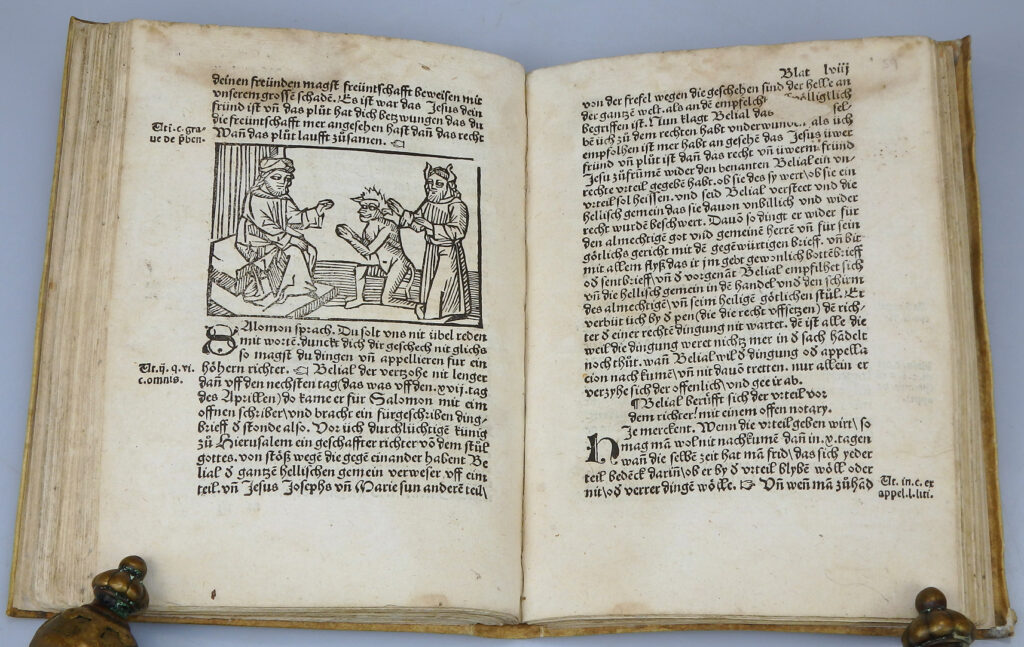 deinen freünden magst freüntschafft beweisen mit
unserem grossē schadē. Es ist war das Jesus dein
fründ ist vn̄ das plůt hat dich betzwungen das du
die freüntschafft mer angesehen hast dañ das recht
Wañ das plůt laufft zůsamen.
Ut i. c. gra-
ue de p̄ben.
SAlomon sprach. Du solt uns nit übel reden
mit wortē. dunckt dich dir geschech nit glichs
so magst du dingen vn̄ appellieren für ein
höhern richter. Belial der vertzohe nit lenger
Ut. ij. q. vi.
c. omnis.
dañ vff den nechsten tag (das was vff den .xvij. tag
des Aprillen) do kame er für Salomon mit eim
offnen schriber/vnd bracht ein fürgeschriben ding-
brieff d stonde also. Vor üch durchlüchtige künig
zů Hierusalem ein geschaffter richter vō dem stůl
gottes. von stöß wegē die gegē einander habent Be
lial d gantzē hellischen gemein verweser vff eim
teil. vn̄ Jesus Josephs vn̄ Marie sun anderē teil/
Blat lviij
von der frefel wegen die geschehen sind der helle an
der gantzē welt. als an dē empfelch völligklich
begriffen ist. Nun klagt Belial das sel-
bē üch zů dem rechten habt vnderwundē. als üch
empfolhen ist mer habt an gesehē das Jesus üwer
fründ vn̄ plůt ist dañ das recht vn̄ üwerm fründ
Jesu zůfrümē wider den benanten Belial ein vn-
rechte vrteil gegebē habt. ob sie des sy wert/ob sie ein
vrteil sol heissen. vnd seid Belial versteet vnd die
hellisch gemein das sie dauon vnbillich vnd wider
recht wurdē beschwert. Dauō so dingt er wider für
den almechtigē got vnd gemeinē herrē vn̄ für sein
götlichs gericht mit dē gegēwürtigen brieff. vn̄ bit
mit allem flyß das ir jm gebt gewonlich bottēbrieff
od sentbrieff/vn̄ d vorgenāt Belial empfilhet sich
vn̄ die hellisch gemein in dē handel vnd den schirm
des almechtigē/vn̄ seim heiligē götlichen stůl. Er
verbüt üch by d pen (die die recht vffsetzen) dē rich-
ter d einer rechtē dingung nit wartet. dē ist alle die
weil die dingung weret nichtz mer in d sach hādelt
noch thůt. wañ Belial wil d dingung od appella
cion nach kumē/vn̄ nit dauō tretten. nur allein er
verzyhe sich der offenlich/vnd gee ir ab.
¶ Belial berüfft sich der vrteil vor
dem richter/mit einem offen notary.
HJe merckent. Wenn die vrteil geben wirt/so
mag mā wol nit nachkumē dañ in .x. tagen
wañ die selbē zeit hat mā frid/das sich yeder
teil bedēck dariñ/ob er by d vrteil blybē wöll oder
nit/od verrer dingē wölle. Vn̄ wen mā zů hād
Ut. in. c. ex
appel. l. liti.